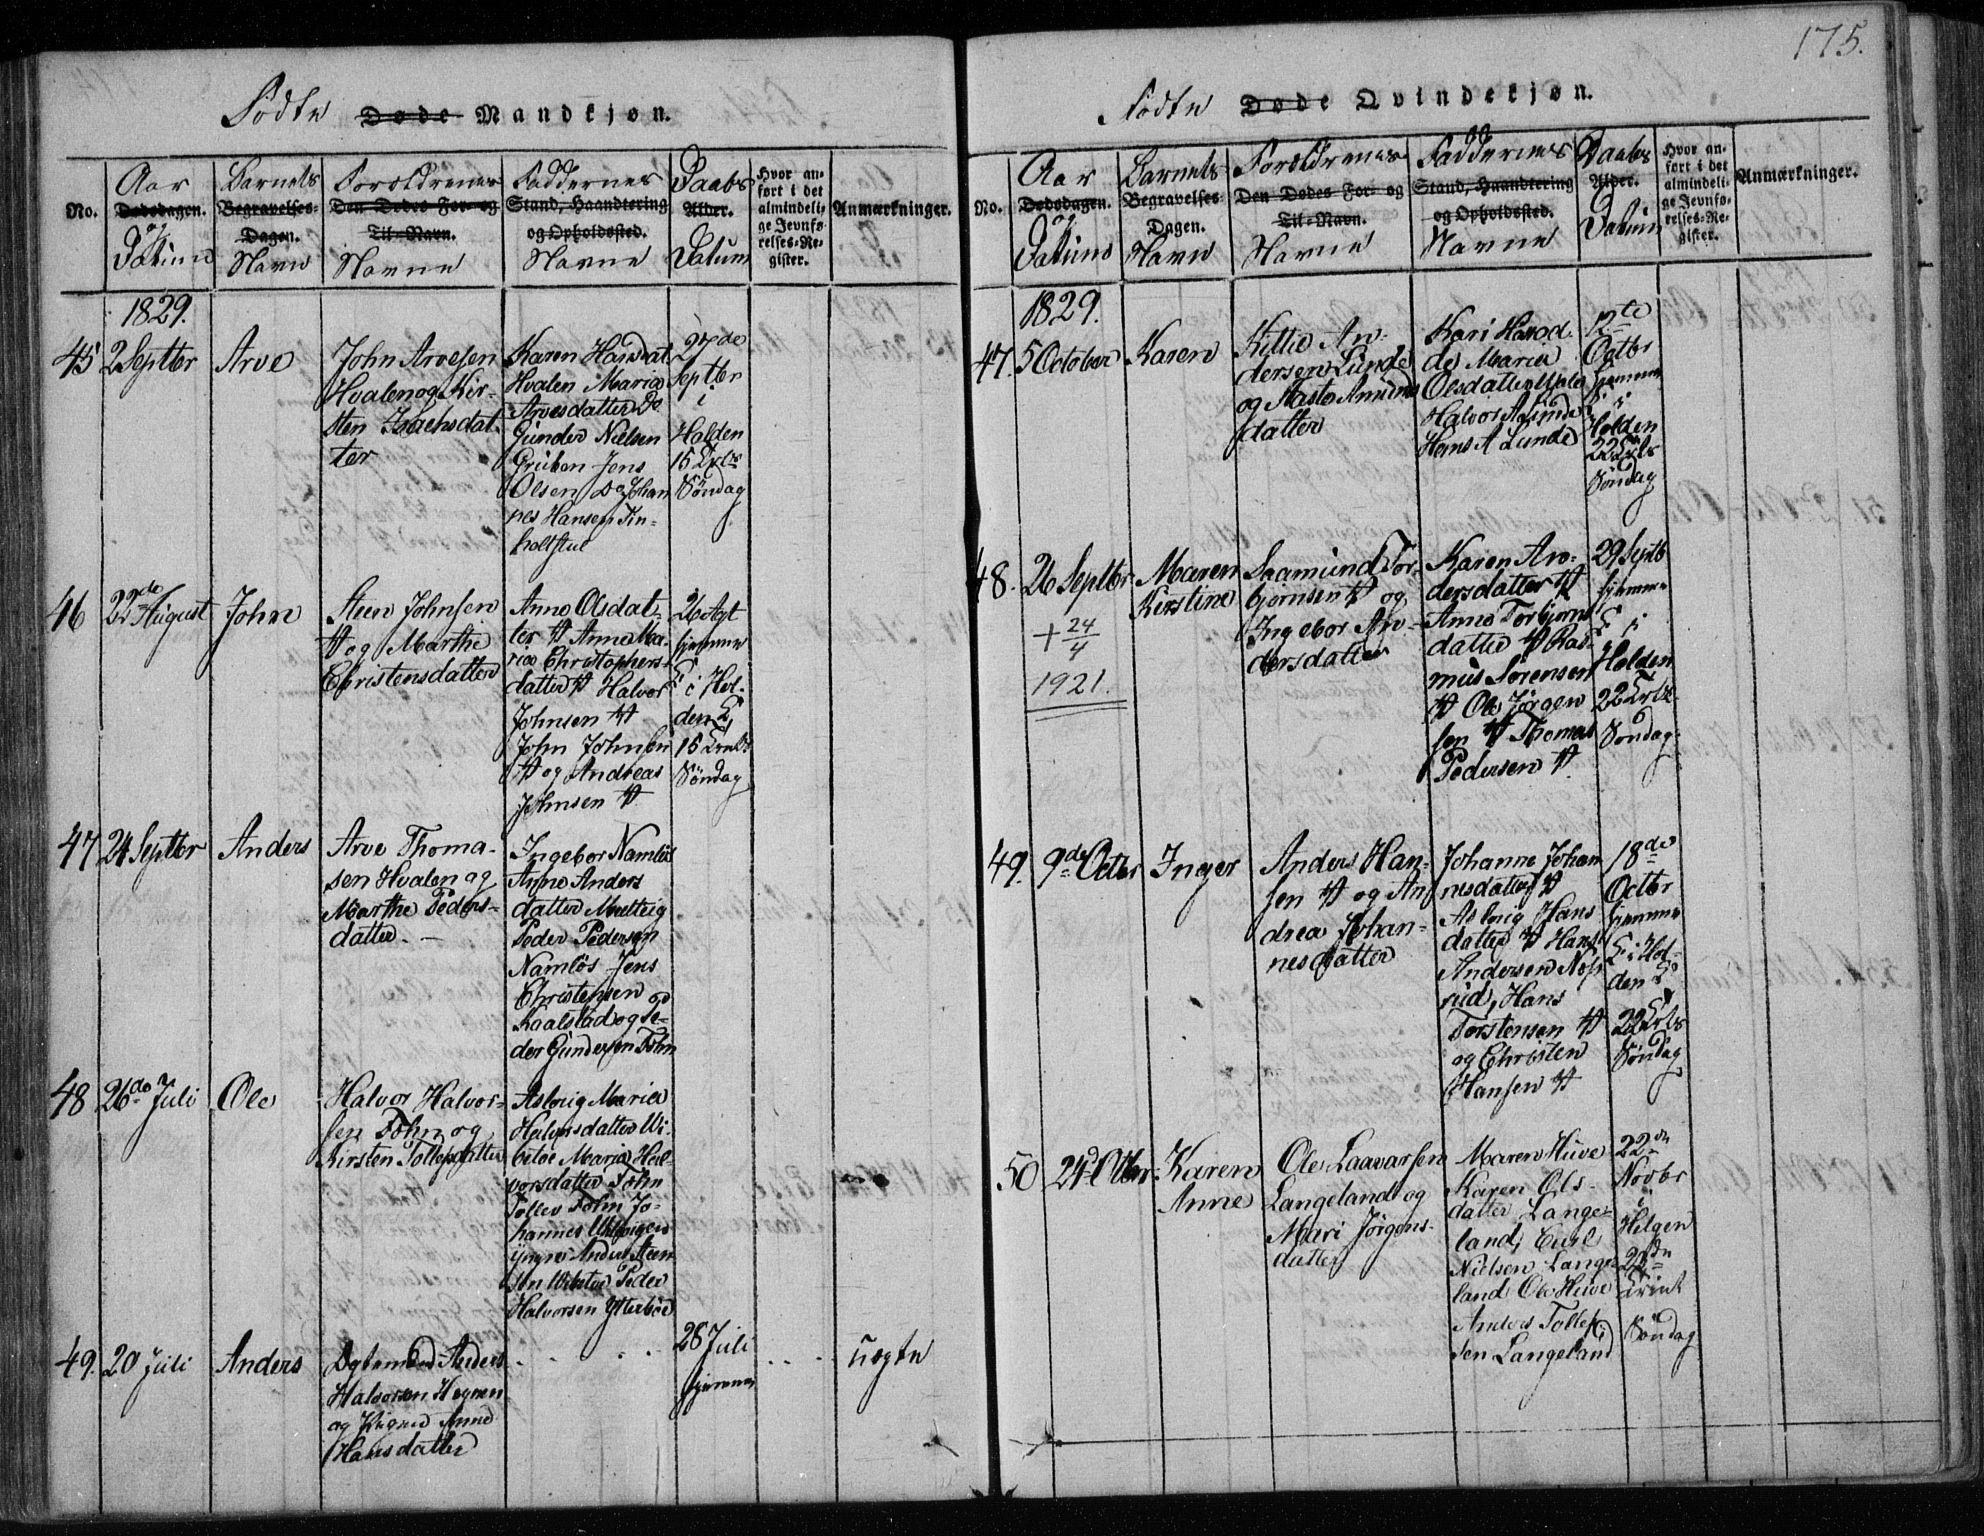 175.
Födte Døde Mandkjøn.
No.
Aar
Dødsdagen.
og
Datum
Barnets
Begravelses-
Dagen.
Navn
Forældrenes
Den Dødes For- og
Til-Navn.
Navne
Faddernes
Stand, Haandtering
og Opholdssted.
Navne
Daabs
Alder.
Datum
Hvor an-
ført i det
almindeli-
ge Jevnfø-
relses-Re-
gister.
Anmærkninger.
1829.
45
2 Septbr
Arve
John Arvesen
Hvalen og Kir-
sten Isachsdat-
ter
Karen Hansdat
Hvalen Maria
Arvesdatter Do
Gunder Nielsen
Gruben Jens
Olsen Do Johan
nes Hansen Tin-
holtstul
27de
Septbr
i
Holden
15
Söndag
46
22de August
John
Steen Johnsen
og Marthe
Christensdatter
Anne Olsdat-
ter Anna Ma-
ria Christophers-
datter Halvor
Johnsen
John Johnsen
og Andreas
Johnsen
26 Agt
hjemme
i Hol-
den
15
Söndag
47
24 Septbr
Anders
Arve Thoma-
sen Hvalen og
Marthe Peders-
datter. —
Ingebor Namlös
Anne Anders
datter
Peder Pedersen
Namlös Jens
Christensen
Kaalstad og Pe-
der Gundersen Tohn
48
26de Juli
Ole
Halvor Halvor-
sen Tohn og
Kirsten Tollefsdatter
Aslaug Maria
Halvorsdatter Wi-
betoe Maria Hal-
vorsdatter Tohn
Tollev Tohn Jo-
hannes
yngre Anders Steen
sen Wibetoe Peder
Halvorsen Ytterböe
49.
20 Juli
Anders
Anders
Halvorsen
og Anne
Hansdatter
28 Juli
hjemme
uægte
Födte Døde Qvindekjøn.
No.
Aar
Dødsdagen.
og
Datum
Barnets
Begravelses-
Dagen.
Navn
Forældrenes
Den Dødes For- og
Til-Navn.
Navne
Faddernes
Stand, Haandtering
og Opholdssted.
Navne
Daabs
Alder.
Datum
Hvor an-
ført i det
almindeli-
ge Jevnfø-
relses-Re-
gister.
Anmærkninger.
1829.
47.
5 October
Karen
Kittil An-
dersen Lunde
og Aaste Amunds
datter
Kari
Maria
Olsdatter
Halvor
Hans A Lunde
12te
Octbr
hjemme
i
Holden
22
Söndag
48.
26 Septbr
+ 24/4
1921.
Maren
Kirstine
Saamund Tor-
bjørnsen og
Ingebor An-
dersdatter
Karen An-
dersdatter
Anne Torbjørns
datter Ras-
mus Sørensen
Ole Jørgen
sen Thomas
Pedersen
29 Septb
hjemme
i
Holden
22
Søndag
49.
9de Octbr
Inger
Anders Han-
sen og An
drea Johan-
nesdatter
Johanne Johan
nesdatter
Aslaug Hans
datter Hans
Andersen
rud, Hans
Torstensen
og Christen
Hansen
18de
Octbr
hjemme
i Hol-
den
22
Söndag
50
24d Octbr
Karen
Anne
Ole Laavarsen
Langeland og
Mari Jörgens-
datter
Maren Huve
Karen Ols-
datter Lange-
land,
Nielsen Lange-
land Ole Huve
Anders Tollef
sen Langeland
22de
Novbr
i
Helgen
Söndag